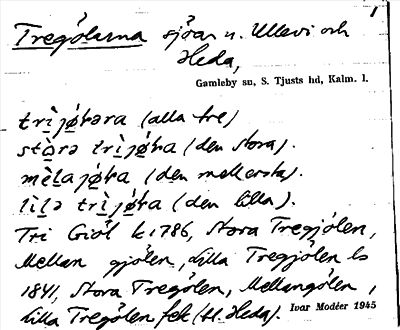 1
Tregölarna sjöar n. Ullevi och
Heda,
Gamleby sn, S. Tjusts hd, Kalm. l.
trìjǿɫəra (alla tre)
stòrə trìjǿɫa (den stora).
mèlajǿɫa (den mellersta).
lìlə trìjǿɫa (den lilla).
Tri Giöl k 1786, Stora Tregjölen,
Mellan gjölen, Lilla Tregjölen ls
1841, Stora Tregölen, Mellangölen,
Lilla Tregölen fek (tl. Heda).
Ivar Modéer 1945